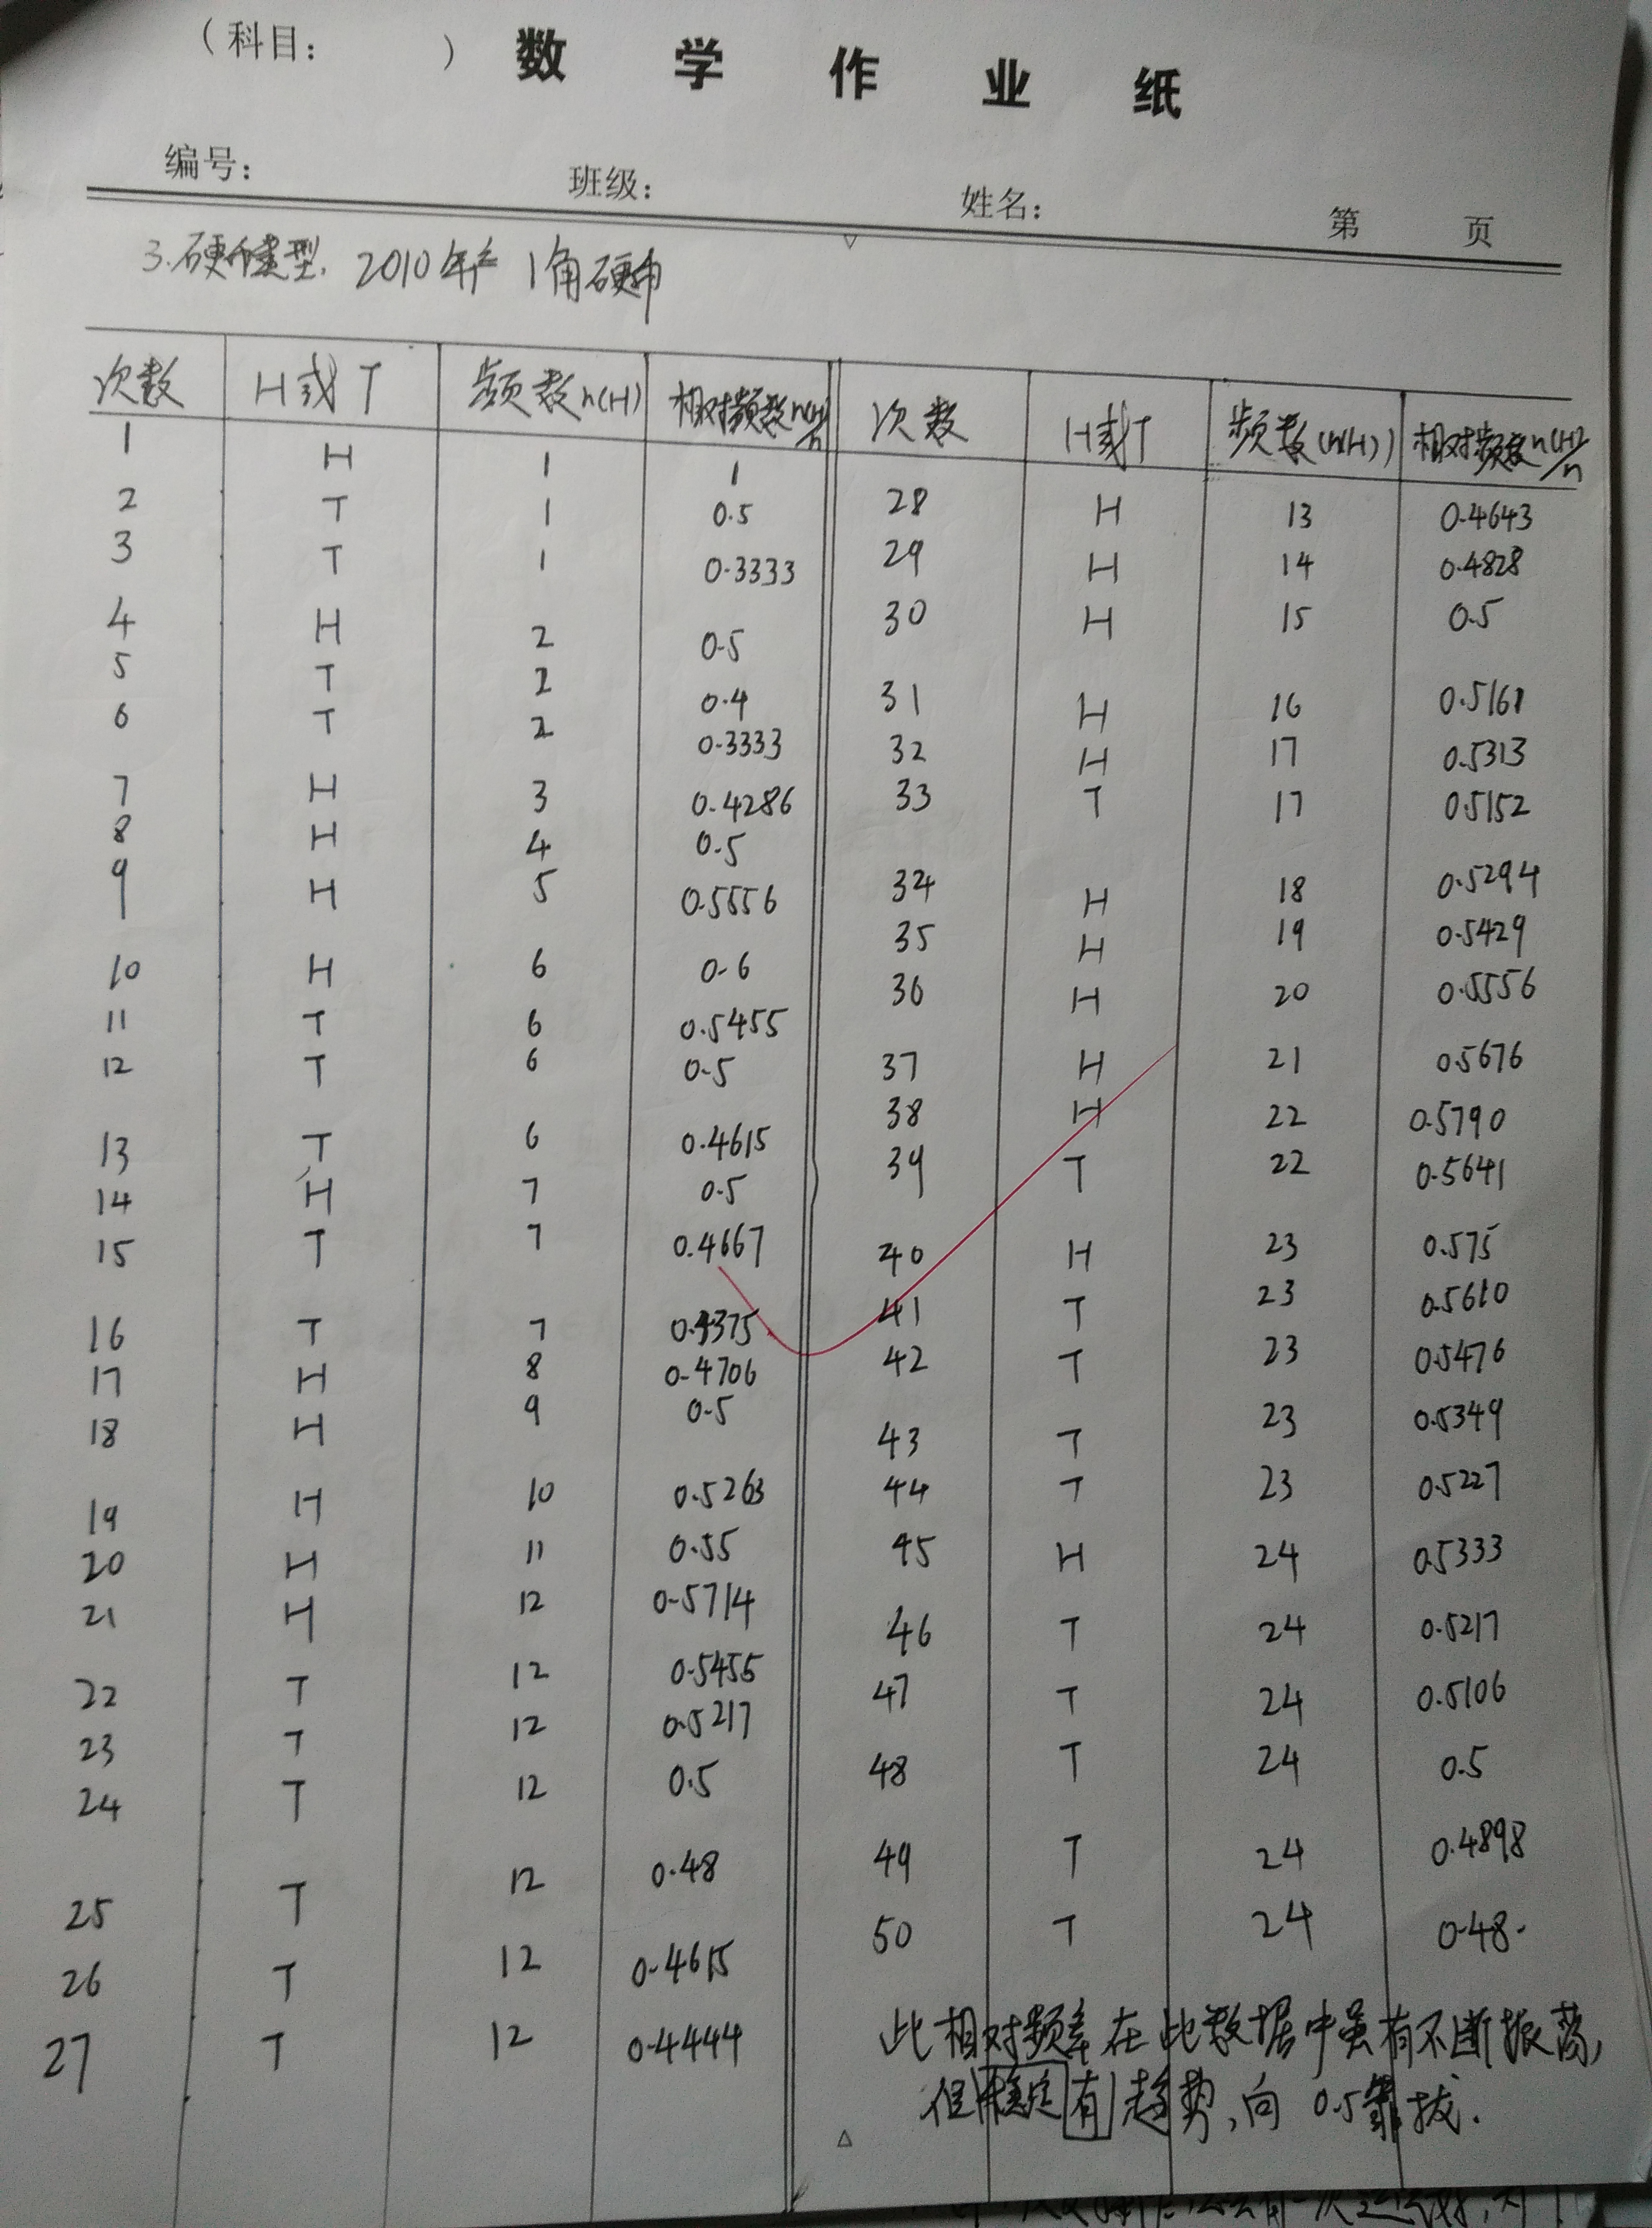 （科目：　　）数学作业纸
编号：　班级：　姓名：　第　页
3.硬币类型. 2010年产 1角硬币
次数 H或T 频数n(H) 相对频数n(H)/n 次数 H或T 频数(n(H)) 相对频数n(H)/n
1 H 1 1
2 T 1 0.5 28 H 13 0.4643
3 T 1 0.3333 29 H 14 0.4828
4 H 2 0.5 30 H 15 0.5
5 T 2 0.4 31 H 16 0.5161
6 T 2 0.3333 32 H 17 0.5313
7 H 3 0.4286 33 T 17 0.5152
8 H 4 0.5
9 H 5 0.5556 34 H 18 0.5294
10 H 6 0.6 35 H 19 0.5429
11 T 6 0.5455 36 H 20 0.5556
12 T 6 0.5 37 H 21 0.5676
13 T 6 0.4615 38 H 22 0.5790
14 H 7 0.5 39 T 22 0.5641
15 T 7 0.4667 40 H 23 0.575
16 T 7 0.4375 41 T 23 0.5610
17 H 8 0.4706 42 T 23 0.5476
18 H 9 0.5 43 T 23 0.5349
19 H 10 0.5263 44 T 23 0.5227
20 H 11 0.55 45 H 24 0.5333
21 H 12 0.5714 46 T 24 0.5217
22 T 12 0.5455 47 T 24 0.5106
23 T 12 0.5217
24 T 12 0.5 48 T 24 0.5
25 T 12 0.48 49 T 24 0.4898
26 T 12 0.4615 50 T 24 0.48.
27 T 12 0.4444
此相对频率在此数据中虽有不断振荡,
但稳定有趋势,向 0.5靠拢.